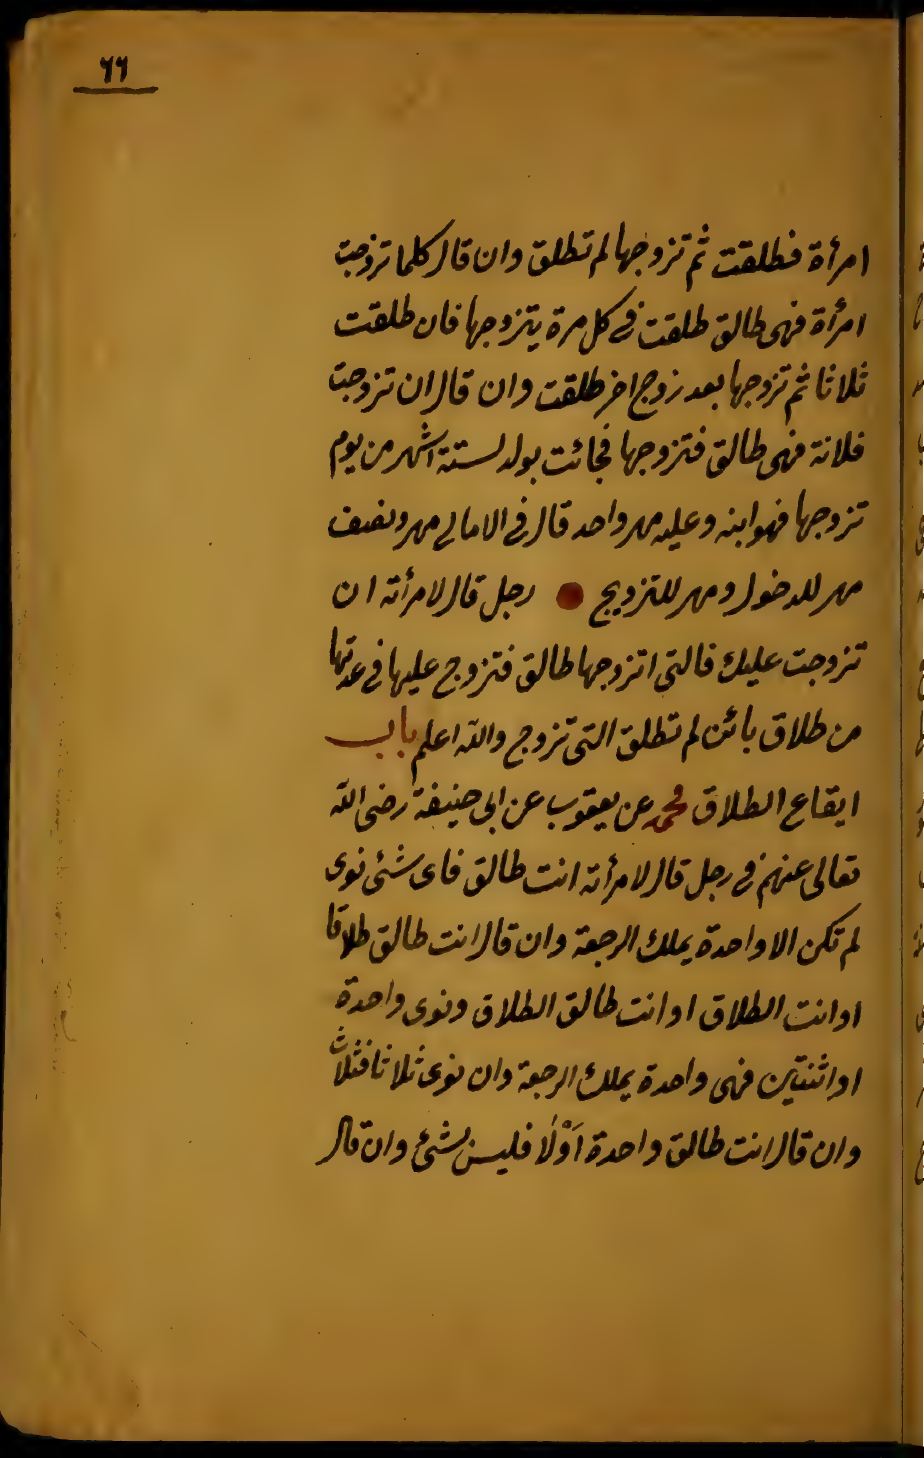 ٦٦
امرأة فطلقت ثم تزوجها لم تطلق وان قال كلما تزوجت
امرأة فهى طالق طلقت فى كل مرة يتزوجها فان طلقت
ثلاثا ثم تزوجها بعد زوج اخر طلقت وان قال ان تزوجت
فلانة فهى طالق فتزوجها فجائت بولد لستة اشهر من يوم
تزوجها فهو ابنه وعليه مهر واحد قال فى الامالى مهر ونصف
مهر للدخول ومهر للتزويج رجل قال لامرأته ان
تزوجت عليك فالتى اتزوجها طالق فتزوج عليها فى عدتها
من طلاق بائن لم تطلق التى تزوج والله اعلم باب
ايقاع الطلاق محمد عن يعقوب عن ابى حنيفة رضى الله
تعالى عنهم فى رجل قال لامرأته انت طالق فاى شئ نوى
لم تكن الا واحدة يملك الرجعة وان قال انت طالق طلاقا
او انت الطلاق او انت طالق الطلاق ونوى واحدة
او اثنتين فهى واحدة يملك الرجعة وان نوى ثلاثا فثلاث
وان قال انت طالق واحدة اَوْلَا فليس بشئ وان قال